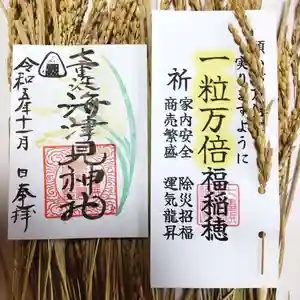 海津見神社
令和五年十一月 日奉拝
実りますように
一粒万倍 福稲穂
祈
家内安全 除災招福
商売繁盛 運気龍昇